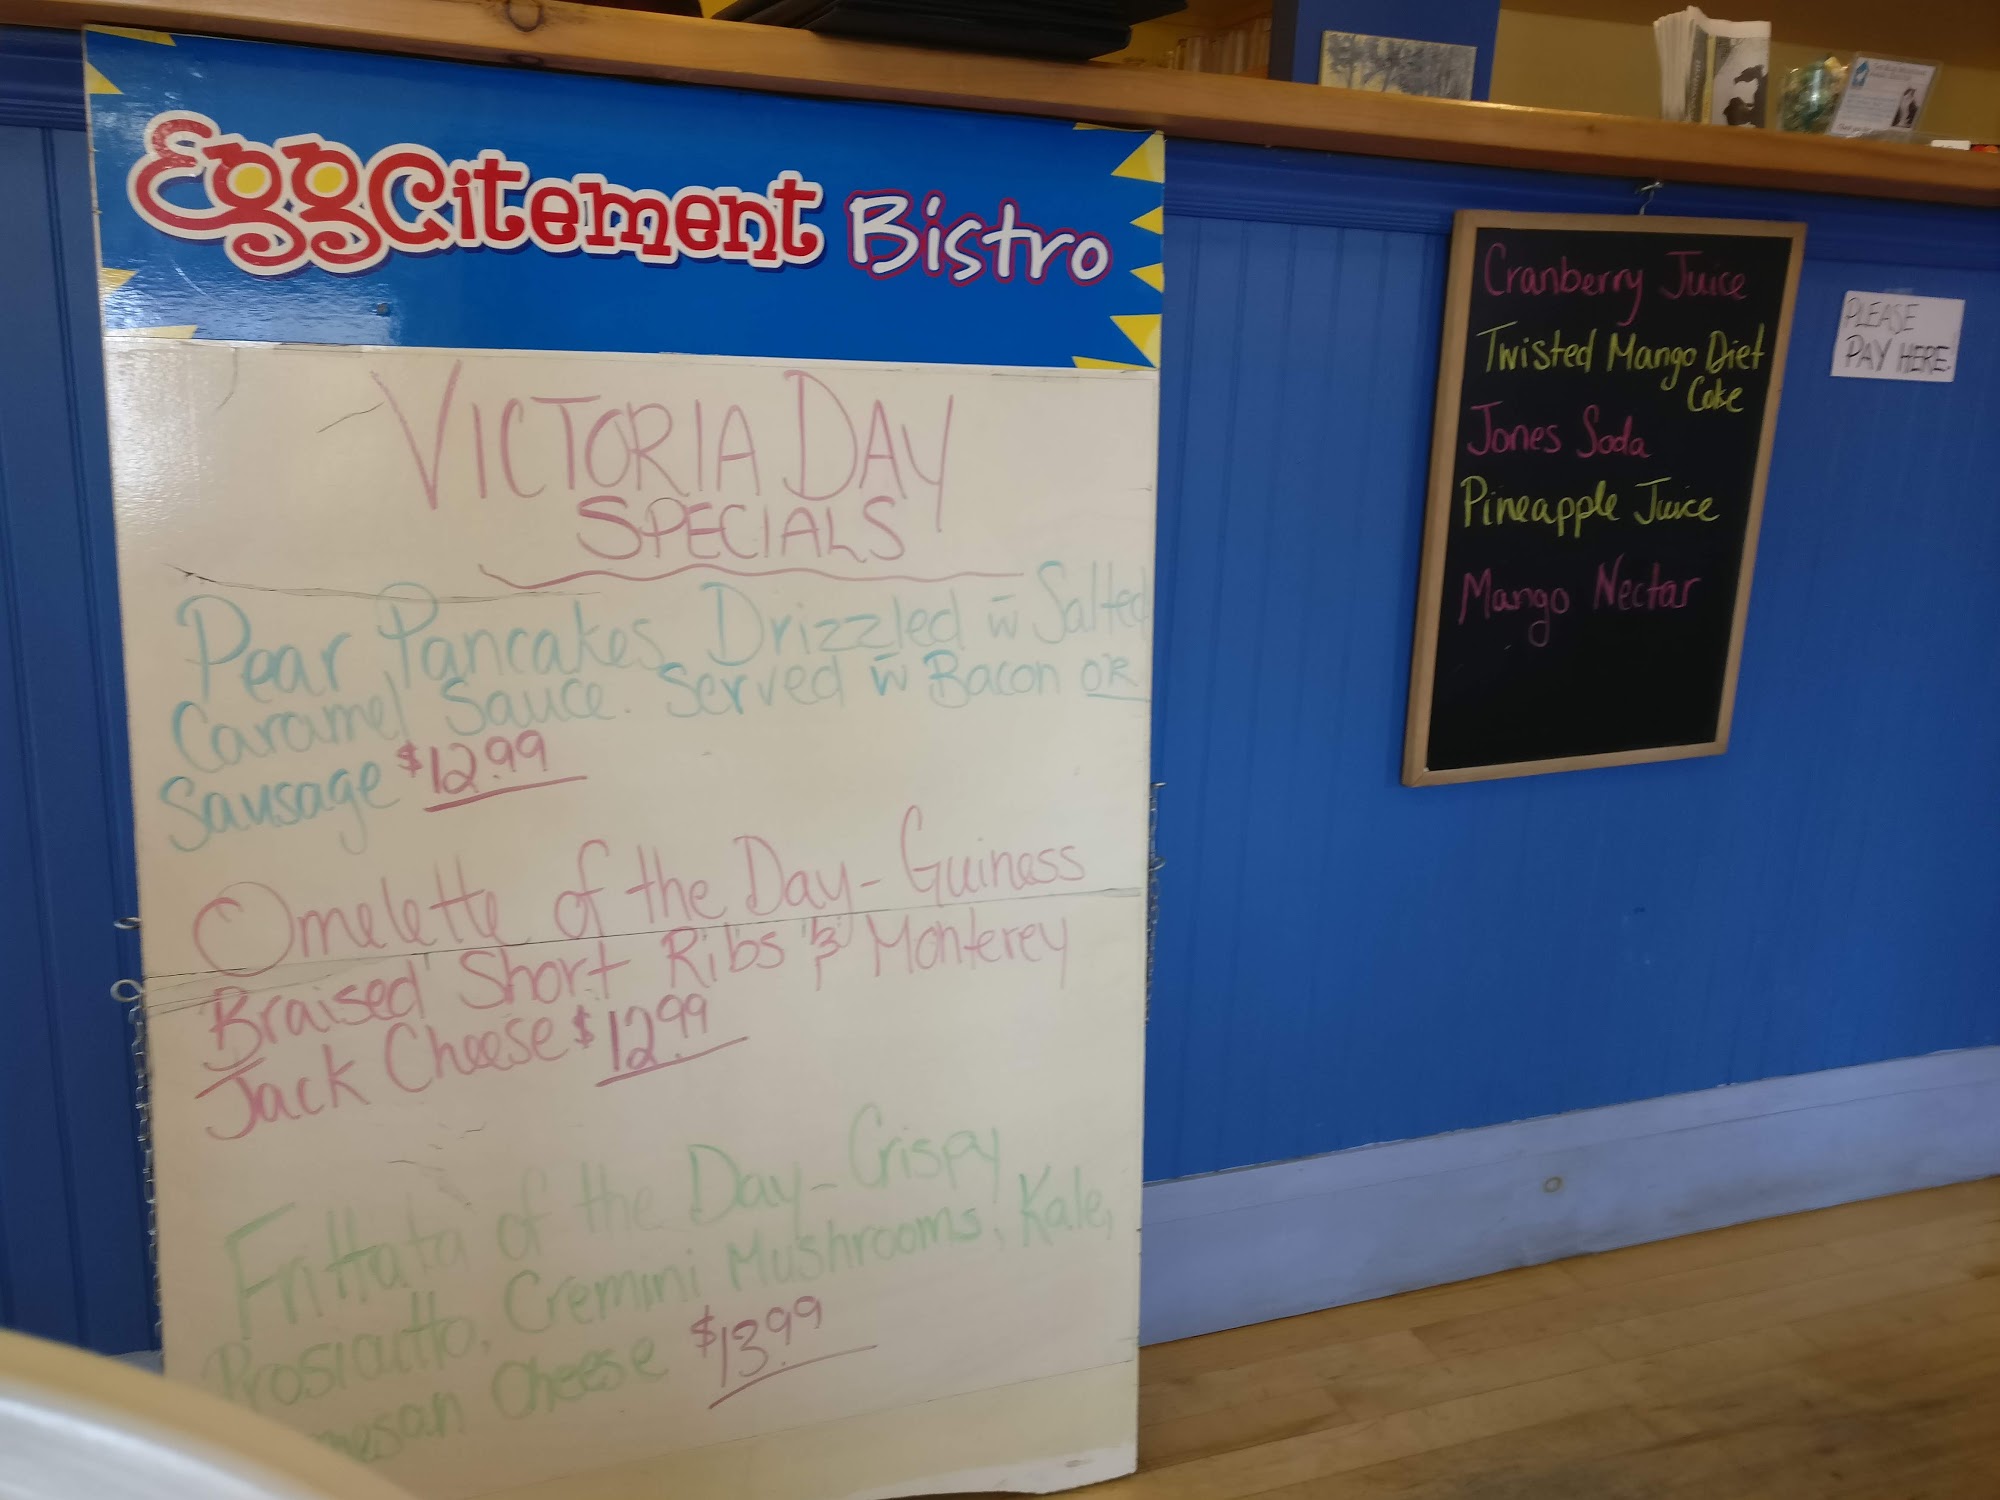 EggCitement Bistro
VICTORIA DAY
SPECIALS
Pear Pancakes Drizzled w̄ Salted
Caramel Sauce. Served w̄ Bacon OR
Sausage $12.99
Omelette of the Day - Guiness
Braised Short Ribs & Monterey
Jack Cheese $12.99
Frittata of the Day - Crispy
Prosiautto, Cremini Mushrooms, Kale,
Cheese $13.99
Cranberry Juice
Twisted Mango Diet
Coke
Jones Soda
Pineapple Juice
Mango Nectar
PLEASE
PAY HERE